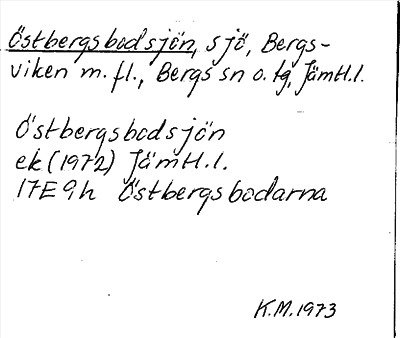 Östbergsbodsjön, sjö, Bergs-
viken m.fl., Bergs sn o. tg, Jämtl.l.
Östbergsbodsjön
ek (1972) Jämtl.l.
17E 9h Östbergsbodarna
K.M. 1973